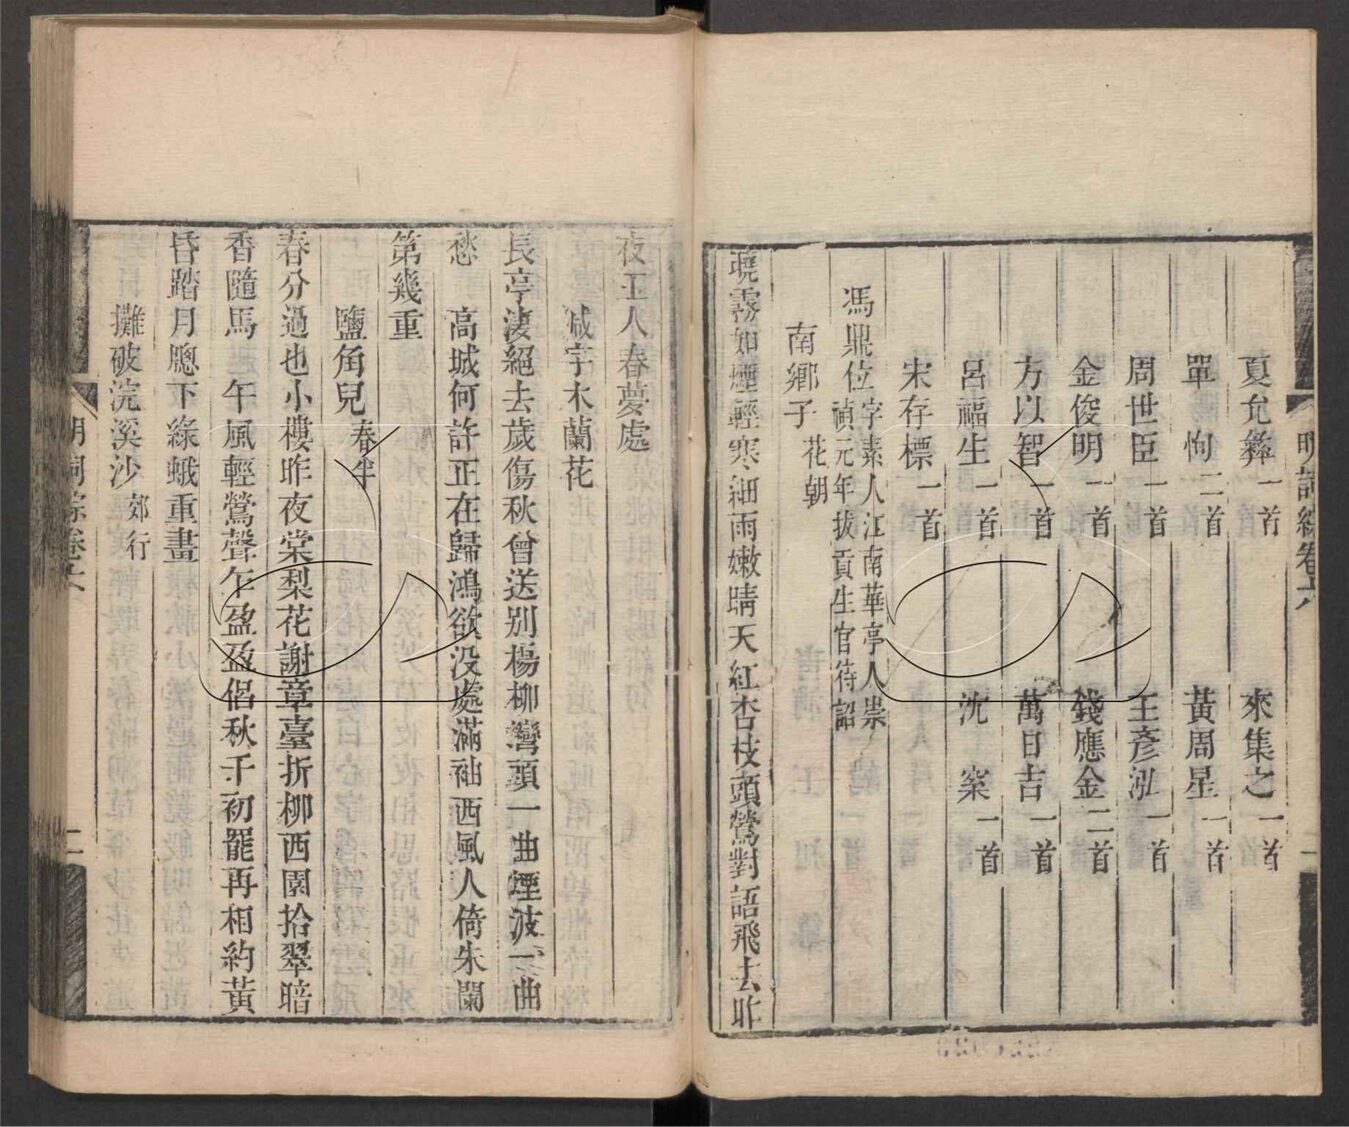 明詞綜卷六
夏允彝一首　來集之一首
單恂二首　黃周星一首
周世臣一首　王彥泓一首
金俊明一首　錢應金二首
方以智一首　萬日吉一首
呂福生一首　沈　一首
宋存標一首
馮鼎位字素人江南華亭人崇禎元年拔貢生官待詔
南鄉子花朝
曉霧如煙輕寒細雨嫩晴天紅杏枝頭鶯對語飛去昨
夜玉人春夢處
減字木蘭花
長亭淒絕去歲傷秋曾送別楊柳灣頭一曲煙波一曲
愁　高城何許正在歸鴻欲没處滿袖西風人倚朱闌
第幾重
鹽角兒春半
春分過也小樓昨夜棠梨花謝章臺折柳西園拾翠暗
香隨馬　午風輕鶯聲乍盈盈侶秋千初罷再相約黃
昏踏月牕下綠蛾重畫
攤破浣溪沙郊行
明詞綜卷六
二